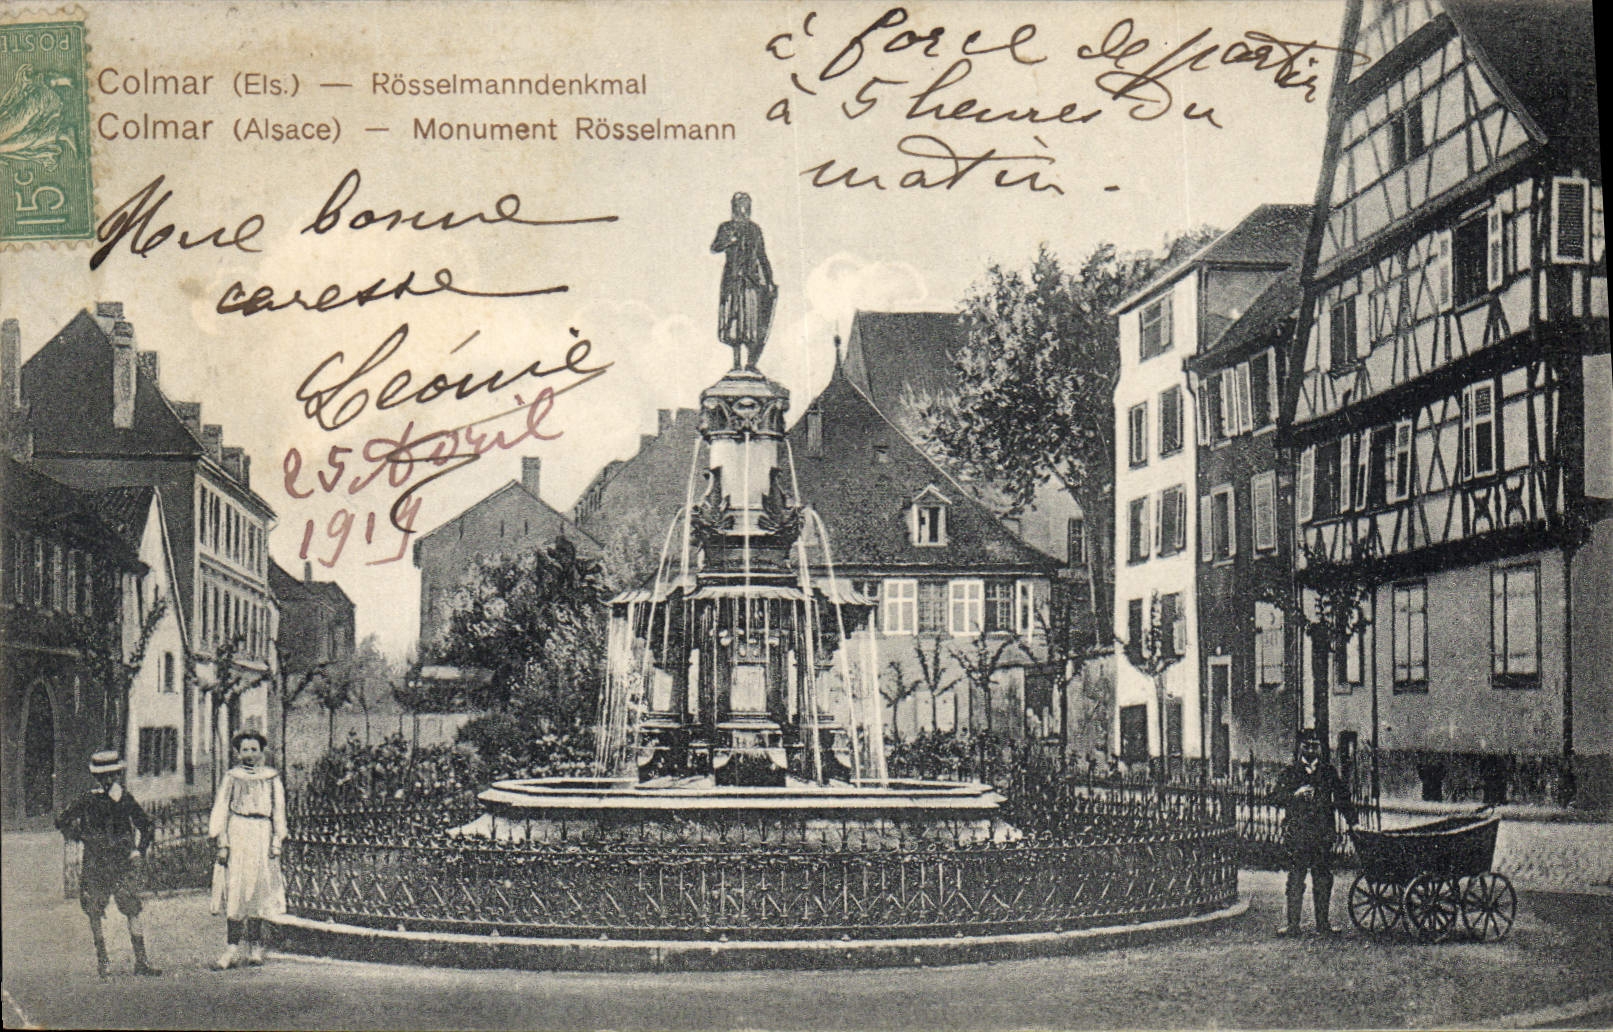 POSTES
15c
Colmar (Els.) — Rösselmanndenkmal
Colmar (Alsace) — Monument Rösselmann
à force de partir
à 5 heures du
matin.
Une bonne
caresse
Léonie
25 Avril
1919